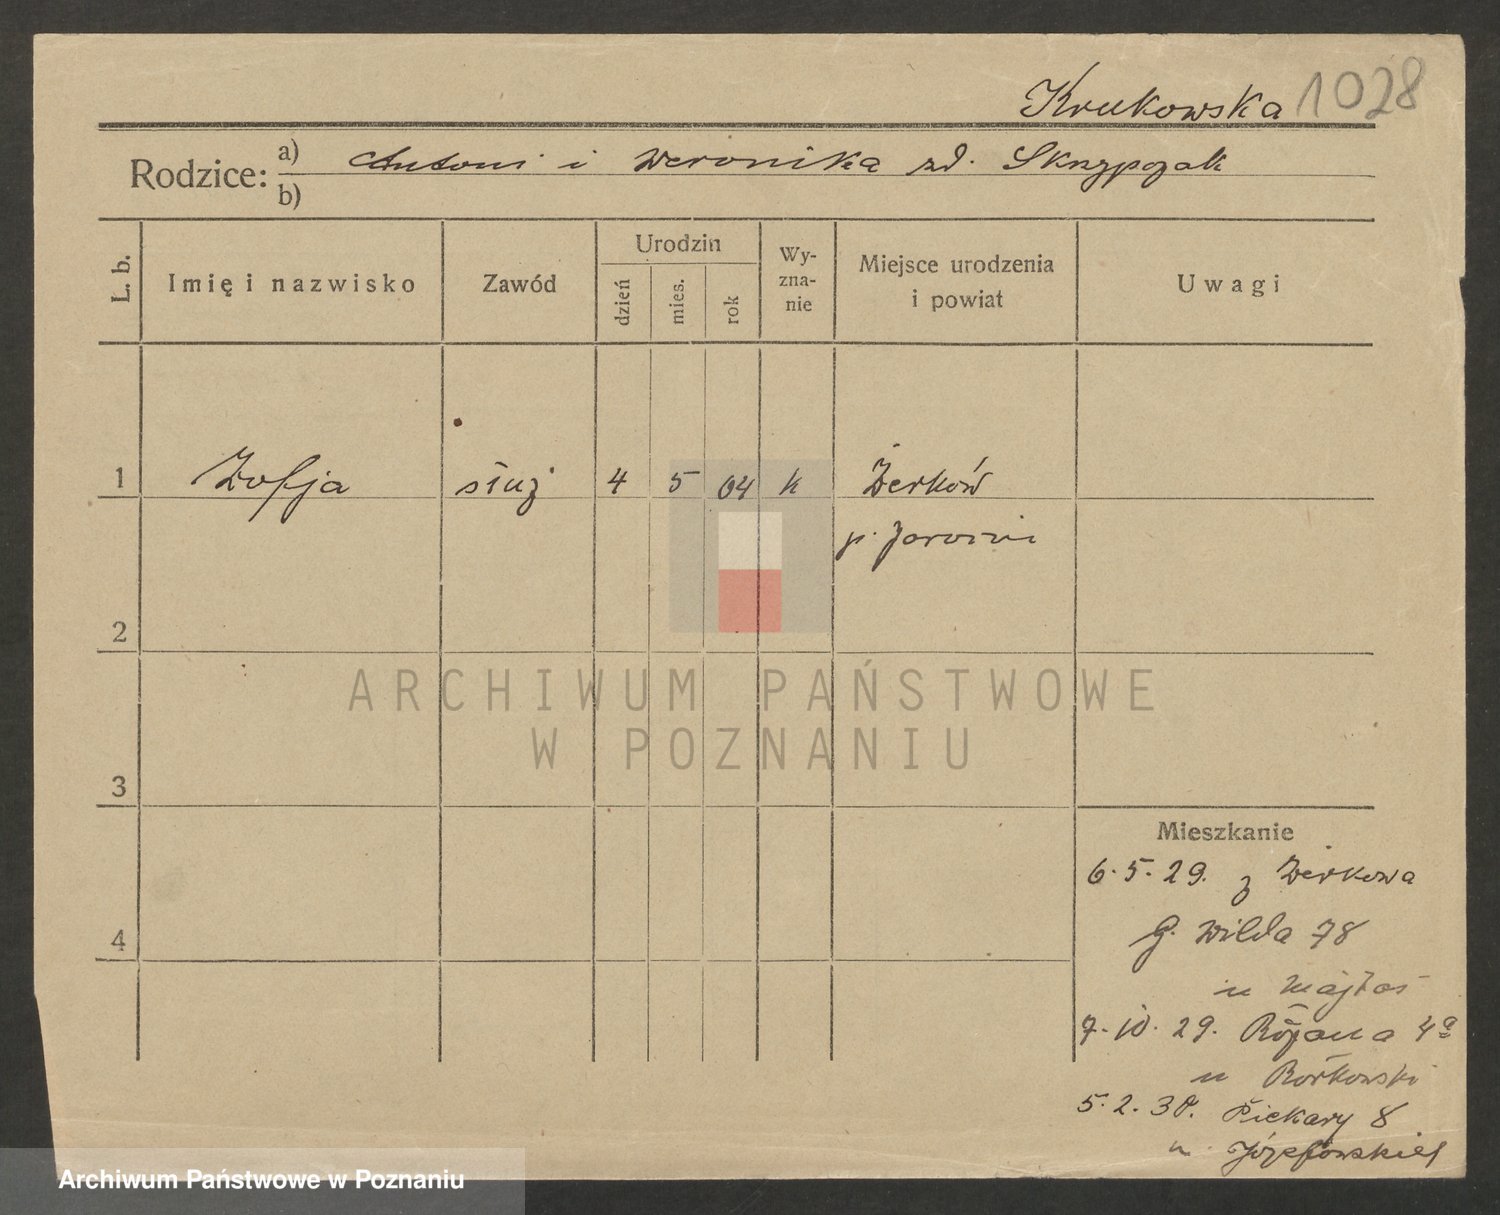 Krukowska 1028
Rodzice: a) Antoni i Weronika zd. Skrzypczak
b)
L. b. Imię i nazwisko Zawód Urodzin dzień mies. rok Wyznanie Miejsce urodzenia i powiat Uwagi
1 Zofja służ 4 5 04 k Żerków
p. Jarocin
2
3
4
Mieszkanie
6.5.29. z Żerkowa
G. Wilda 78
u Majtas
7.10.29. Różana 4a
u Borkowski
5.2.30. Piekary 8
u Józefowskiej
ARCHIWUM PAŃSTWOWE
W POZNANIU
Archiwum Państwowe w Poznaniu